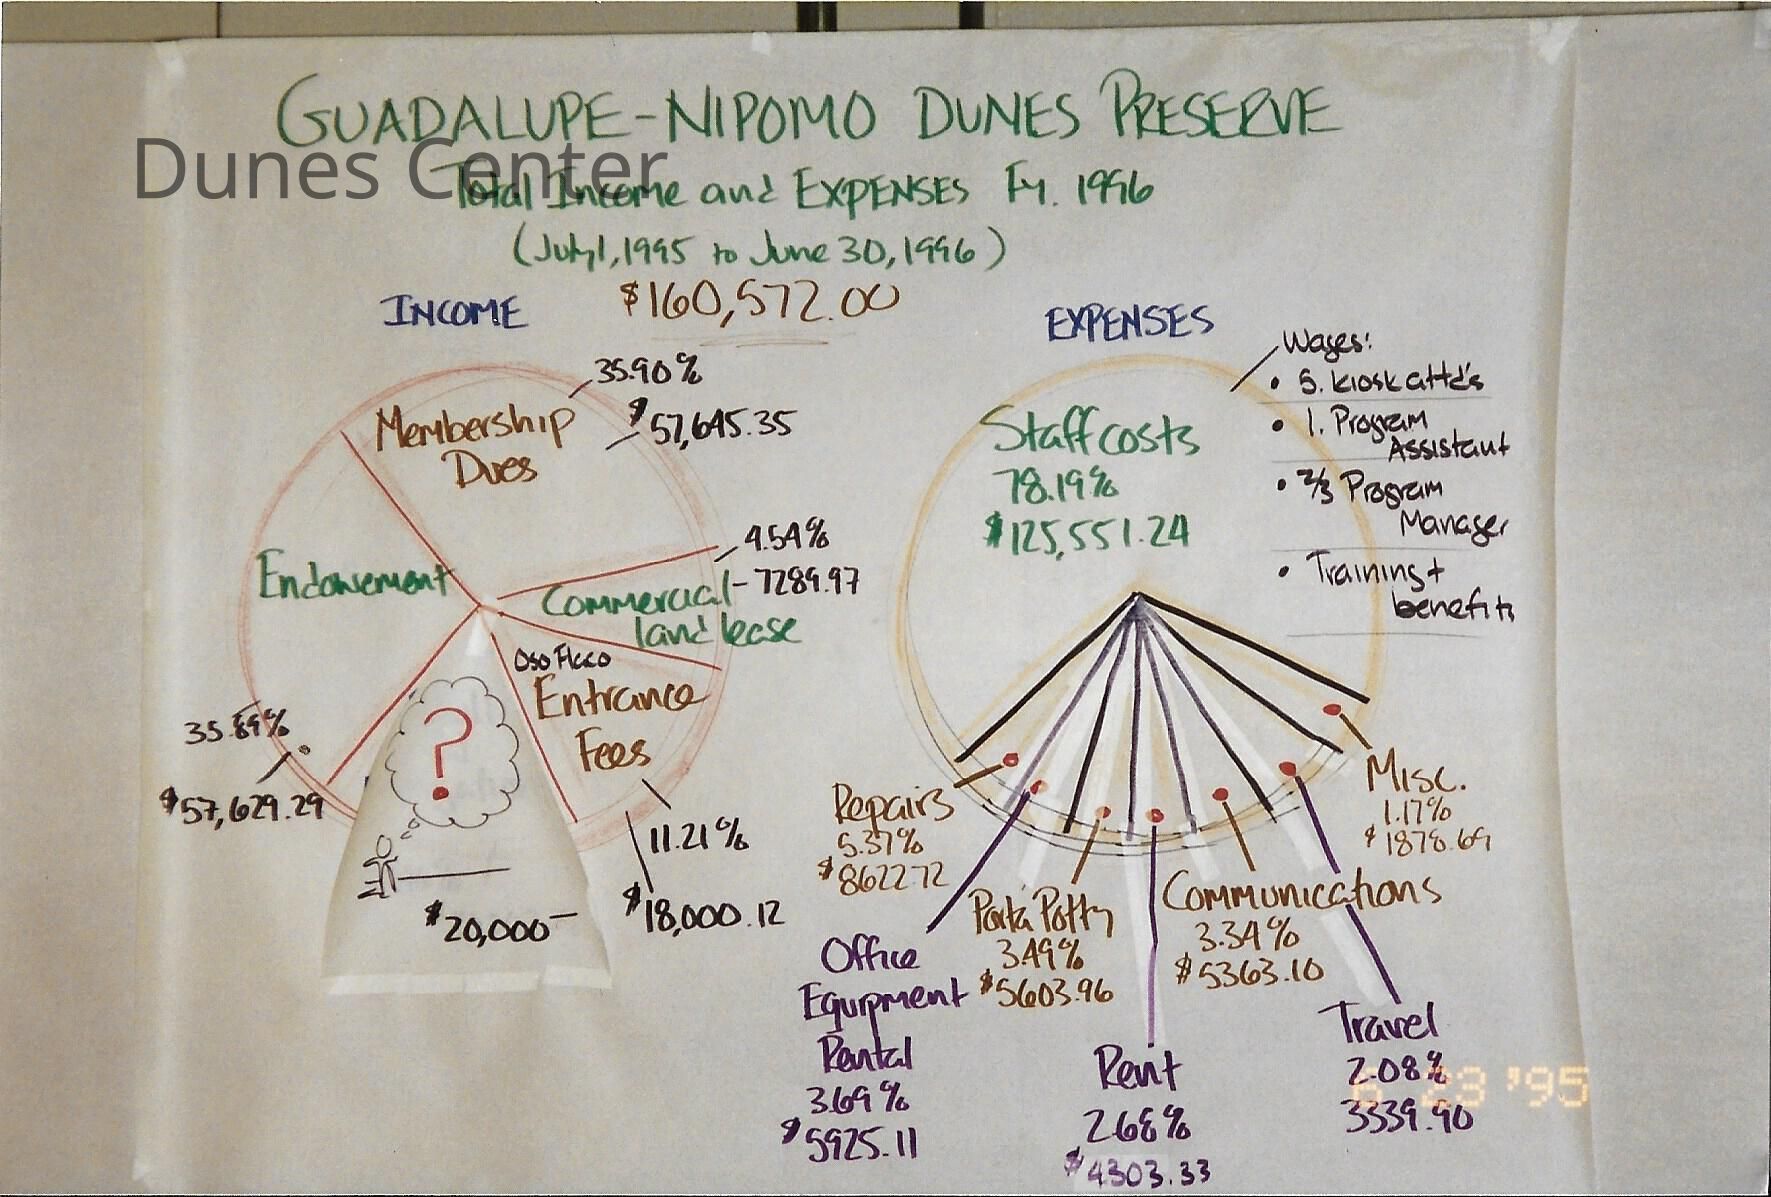 GUADALUPE-NIPOMO DUNES PRESERVE
Dunes Center
Total Income and EXPENSES Fy. 1996
(July 1, 1995 to June 30, 1996)
$160,572.00
INCOME
35.90%
$57,645.35
Membership
Dues
4.54%
7289.97
Commercial
land lease
Endowement
35.89%
$57,629.29
Oso Flaco
Entrance
Fees
11.21%
$18,000.12
?
$20,000—
EXPENSES
Wages:
• 5. kiosk attd's
• 1. Program
Assistant
• 2/3 Program
Manager
• Training +
benefits
Staff costs
78.19%
$125,551.24
Repairs
5.37%
$8622.72
Office
Equipment
Rental
3.69%
$5925.11
Porta Potty
3.49%
$5603.96
Rent
2.68%
$4303.33
Communications
3.34%
$5363.10
Travel
2.08%
3339.90
Misc.
1.17%
$1878.69
6 23 '95